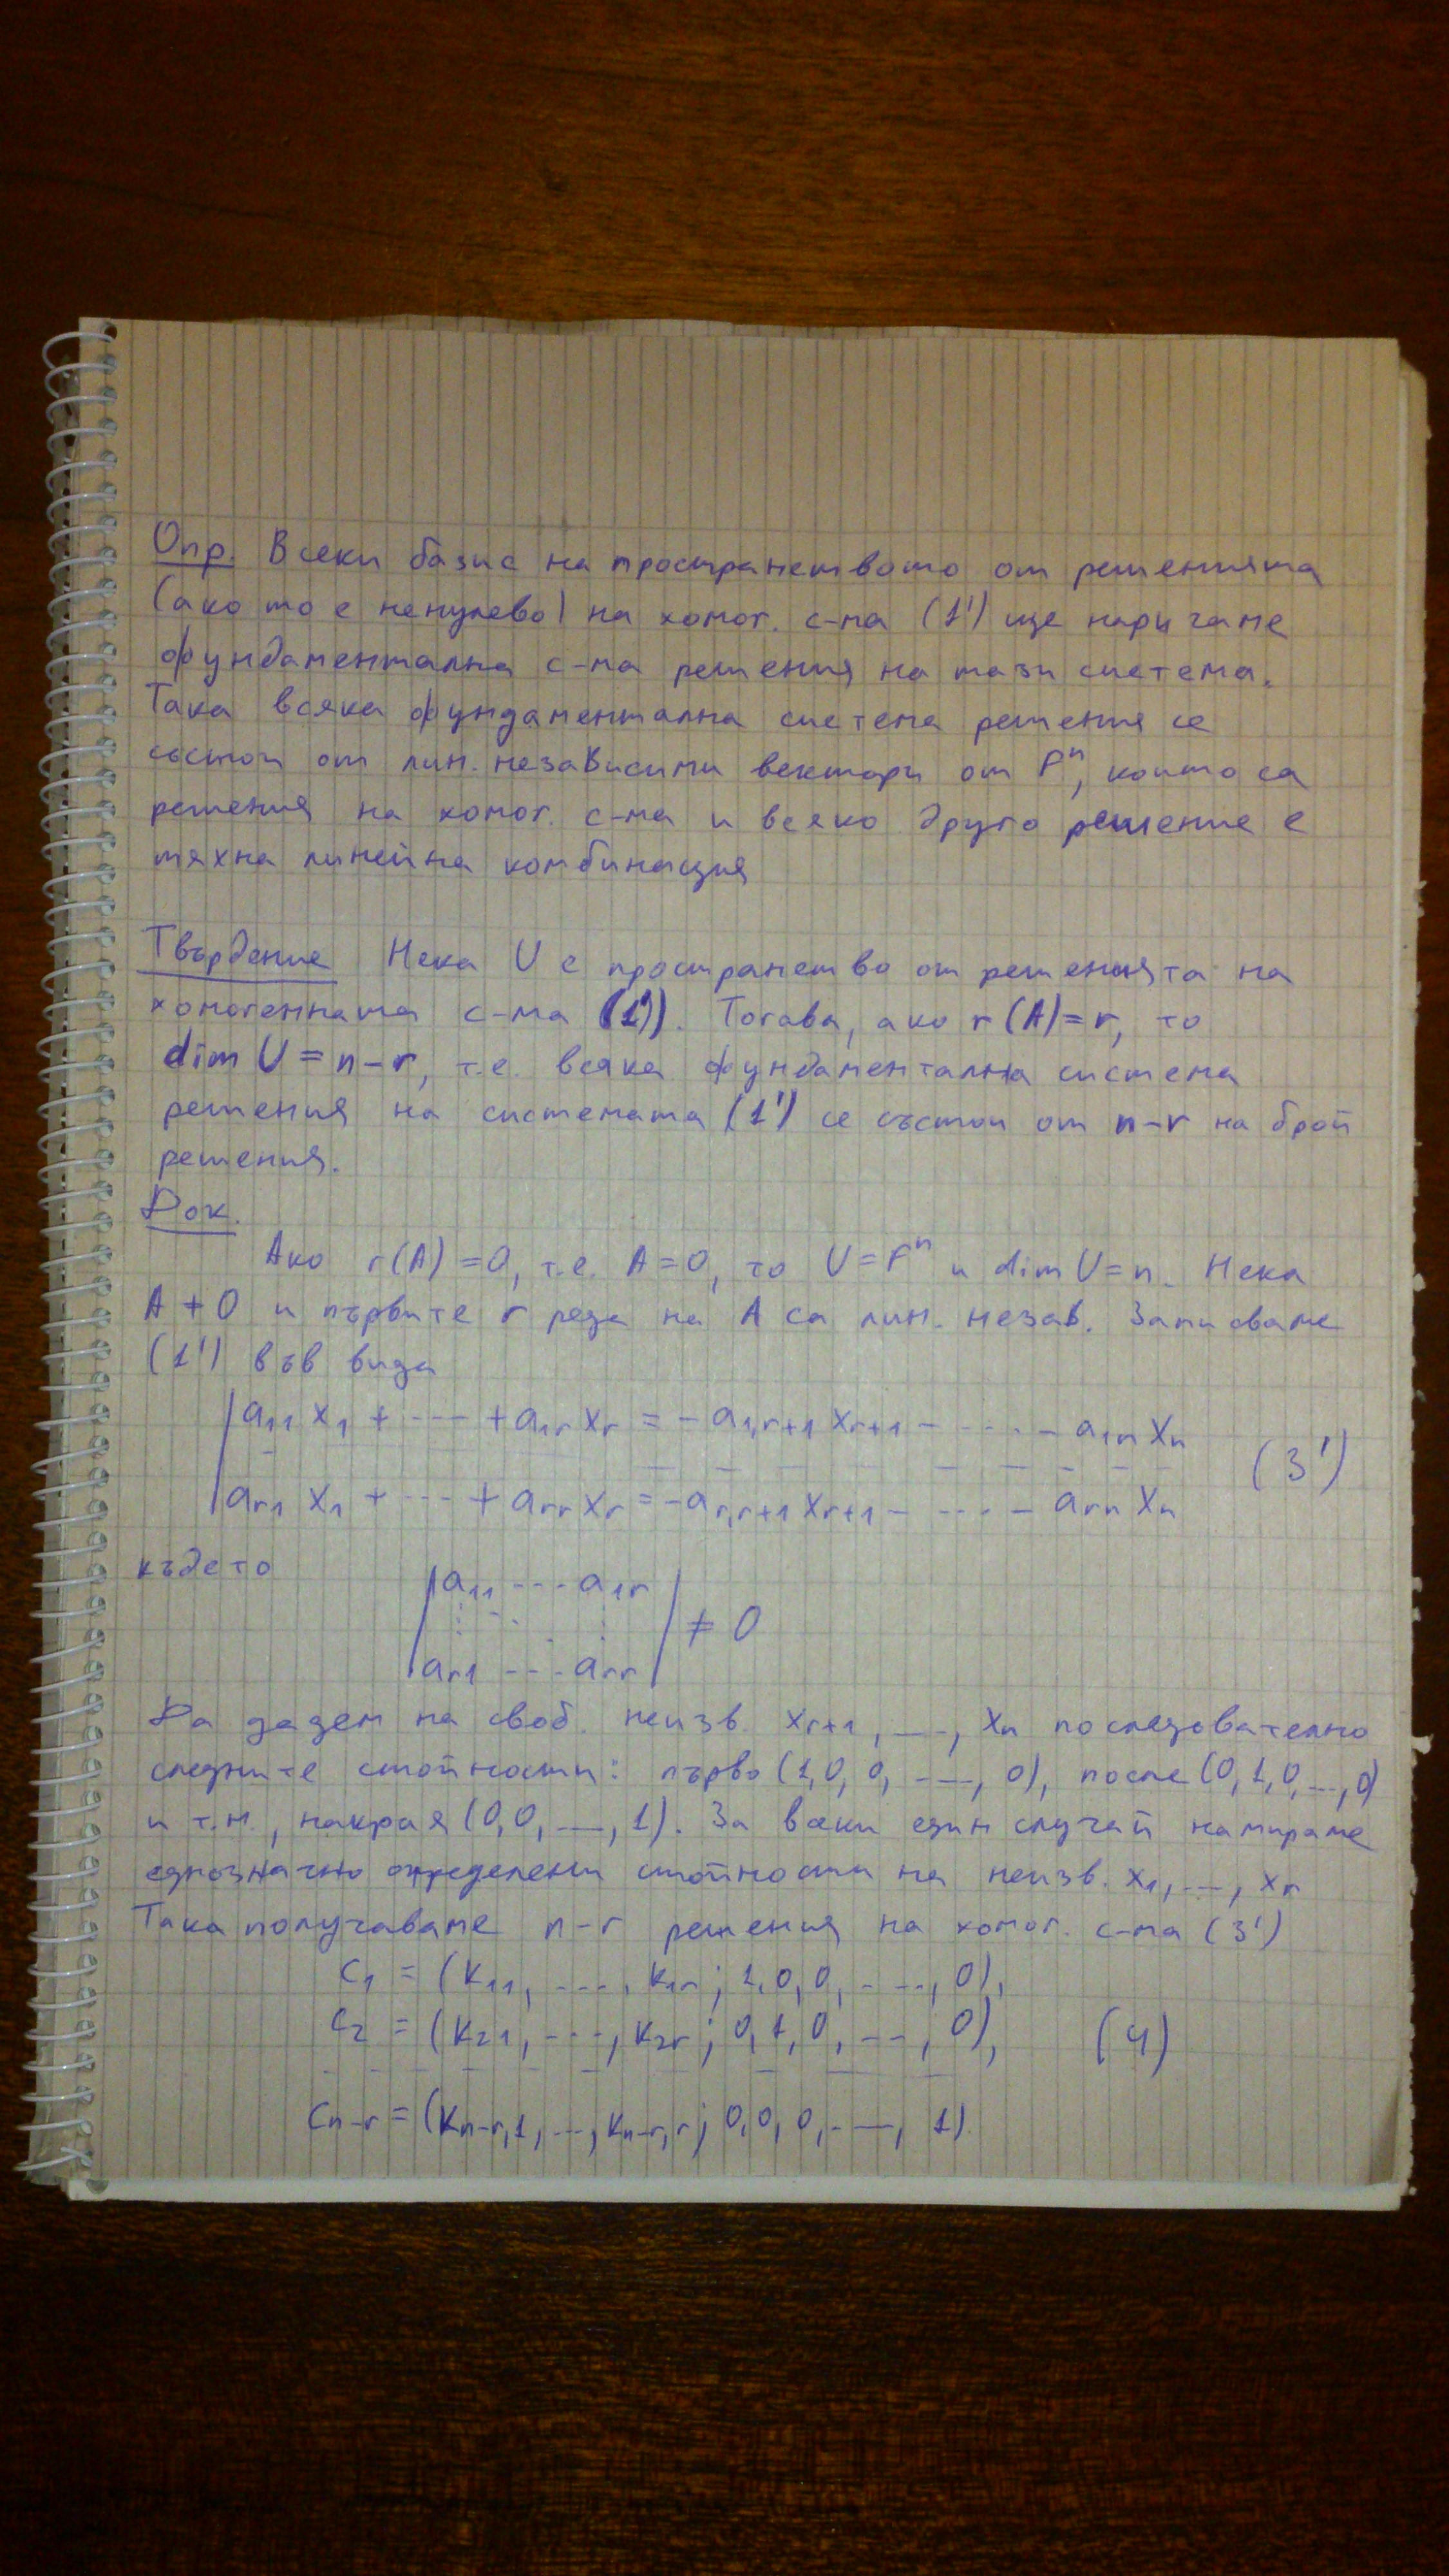 Опр. Всеки базис на пространството от решенията
(ако то е ненулево) на хомог. с-ма (1') ще наричаме
фундаментална с-ма решения на тази система.
Така всяка фундаментална система решения се
състои от лин. независими вектори от Fⁿ, които са
решения на хомог. с-ма и всяко друго решение е
тяхна линейна комбинация
Твърдение Нека U е пространство от решенията на
хомогенната с-ма (1'). Тогава, ако r(A)=r, то
dim U = n-r, т.е. всяка фундаментална система
решения на системата (1') се състои от n-r на брой
решения.
Док.
Ако r(A)=0, т.е. A=0, то U=Fⁿ и dim U=n. Нека
A ≠ 0 и първите r реда на A са лин. незав. Записваме
(1') във вида
a₁₁ x₁ + ---- + a₁ᵣ xᵣ = - a₁,ᵣ₊₁ xᵣ₊₁ - .... - a₁ₙ xₙ
(3')
aᵣ₁ x₁ + ---- + aᵣᵣ xᵣ = - aᵣ,ᵣ₊₁ xᵣ₊₁ - .... - aᵣₙ xₙ
където
| a₁₁ --- a₁ᵣ |
≠ 0
| aᵣ₁ --- aᵣᵣ |
Да дадем на своб. неизв. xᵣ₊₁, ---, xₙ последователно
следните стойности: първо (1,0,0, ---, 0), после (0,1,0, ---, 0)
и т.н., накрая (0,0, ---, 1). За всеки един случай намираме
еднозначно определени стойности на неизв. x₁, ---, xᵣ
Така получаваме n-r решения на хомог. с-ма (3')
c₁ = (k₁₁, ----, k₁ᵣ; 1,0,0, ----, 0),
c₂ = (k₂₁, ---, k₂ᵣ; 0,1,0, ---, 0), (4)
cₙ₋ᵣ = (kₙ₋ᵣ,₁, ---, kₙ₋ᵣ,ᵣ; 0,0,0, ---, 1).